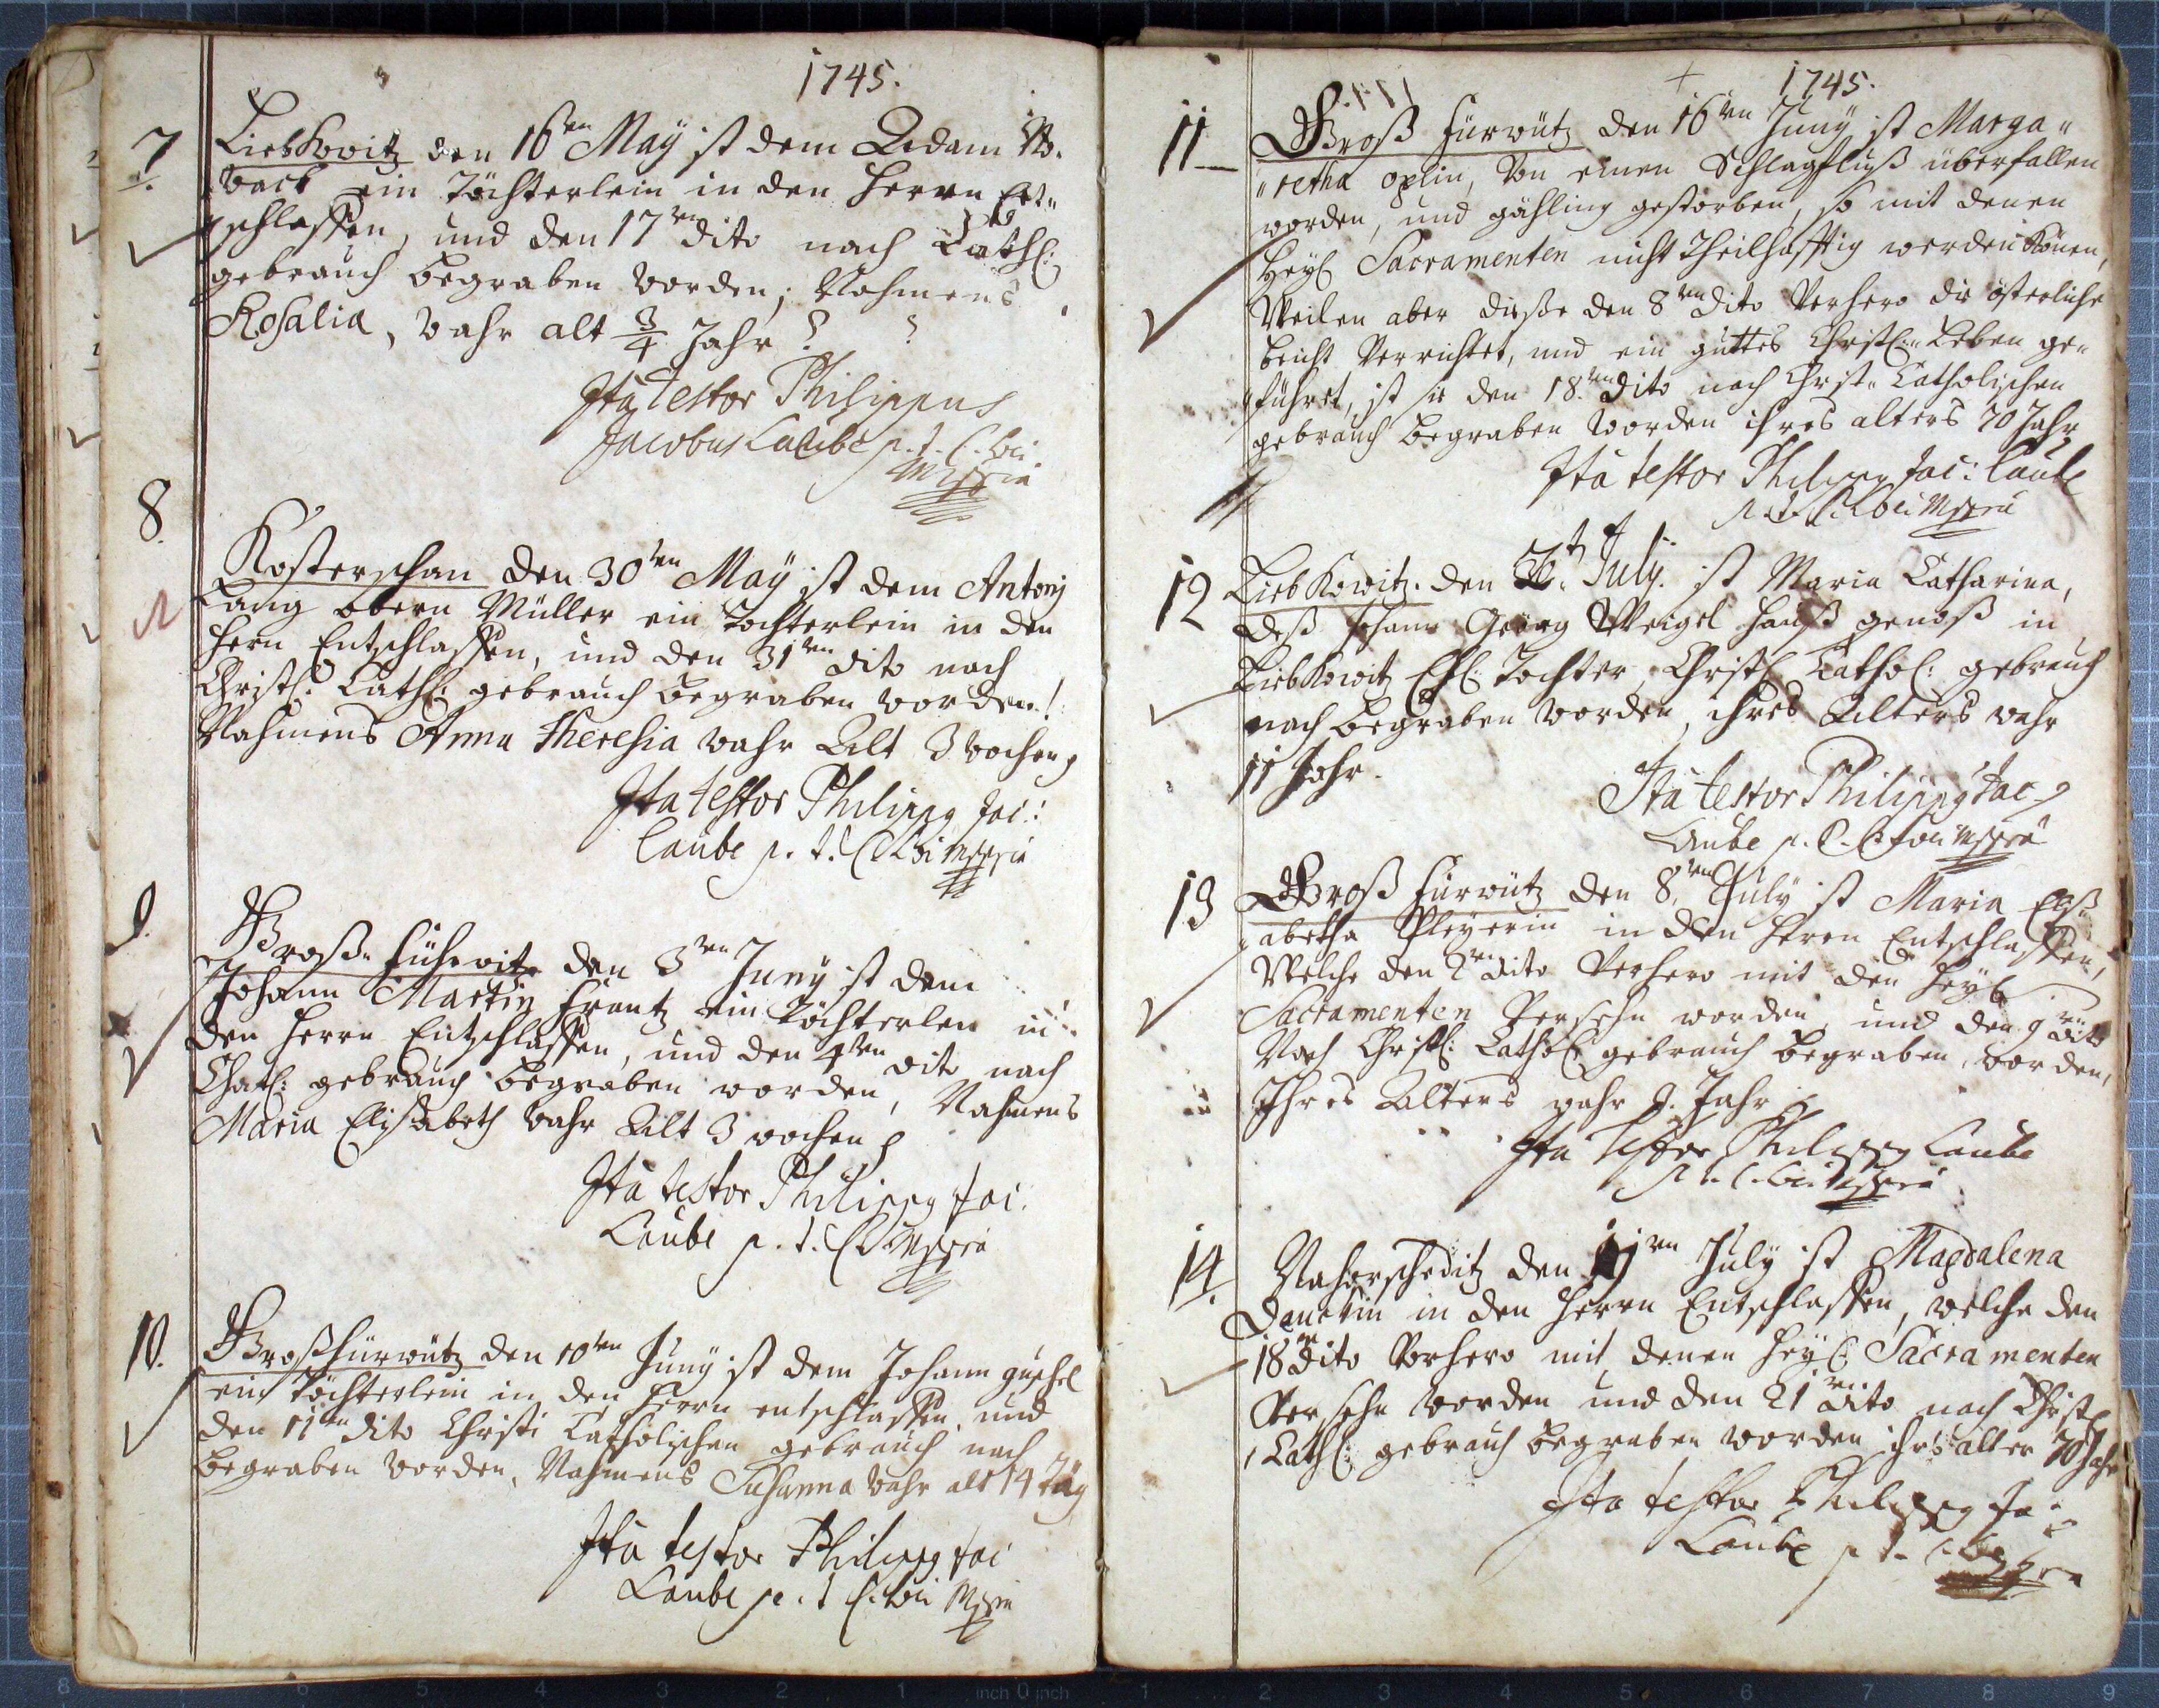 1745.
7.
Liebkowitz den 16ten Maÿ ist dem Adam No-
vack ein Töchterlein in den Herrn Ent-
schlaffen, und den 17ten dito nach Cathl:
gebrauch begraben vorden; Nahmens
Rosalia, vahr alt 3/4 Jahr
Ita testor Philippus
Jacobus Laube p. t. C. loci
Mppria
8.
Kosterschan den 30ten Maÿ ist dem Antonj
Lang obern Müller ein Tochterlein in den
Hern Entschlaffen, und den 31ten dito nach
Christl: Cathl: gebrauch begraben vorden!
Nahmens Anna Theresia vahr Alt 3 vochen
Ita testor Philippg Jac:
Laube p. t. C. Loci Mppria
9.
Groß-Führwitz den 3ten Junÿ ist dem
Johann Martin Frantz ein Töchterlein in
den Herrn Entschlaffen, und den 4ten dito nach
Chatl: gebrauch begraben worden, Nahmens
Maria Elisabeth vahr Alt 3 vochen
Ita testor Philippg Jac:
Laube p. t. C. L. Mppria
10.
Großfürwütz den 10ten Junÿ ist dem Johann
ein Töchterlein in den Herrn entschlaffen, und
den 11ten dito Christi Catholischen gebrauch nach
begraben vorden, Nahmens Susanna vahr alt 14 täg
Ita testor Philippg Jac
Laube p. t. C. loci Mppria
1745.
11
Groß Fürwütz den 16ten Junÿ ist Marga-
"retha Oplin, Von einen Schlagfluß überfallen
worden, und gähling gestorben, so mit denen
Heÿl Sacramenten nicht Theilhafftig werden können,
Weilen aber diße den 8ten dito Verhero die österliche
beicht Verrichtet, und ein guttes Christl: Leben ge-
"führet, ist sie den 18ten dito nach Christ- Catholischen
gebrauch begraben worden ihres alters 70 Jahr
Ita testor Philippg Jac: Laube
p. t. C. Loci Mppria
12
Liebkowitz. den July. ist Maria Catharina,
deß Johann Georg Weigel Hauß genoß in
Liebkowitz Ehl: Tochter, Christl Cathol: gebrauch
nach begraben worden, ihres Alters vahr
11 Jahr.
Ita testor Philippg Jac:
Laube p. t. C. loci Mppria
13
Groß Fürwütz den 8ten July ist Maria Elis-
"abetha Pleyerin in den Herrn Entschlaffen,
Welche den 2ten dito Verhero mit den Heÿl
Sacramenten Versehn worden, und den 9ten dito
Nach Christl: Cathol gebrauch begraben, vorden,
Ihres Alters vahr 9. Jahr
Ita Testor Philippg Laube
p. t. C. loci Mppria
14.
Naherscheditz den July ist Magdalena
in den Herrn Entschlaffen, welche den
18ten dito Vorhero mit denen Heÿl: Sacramenten
Versehn vorden und den 21ten dito nach Christ
Cathl: gebrauch begraben worden ihrs alter 70 Jahr
Ita testor Philippg Ja:
Laube p. t. C.